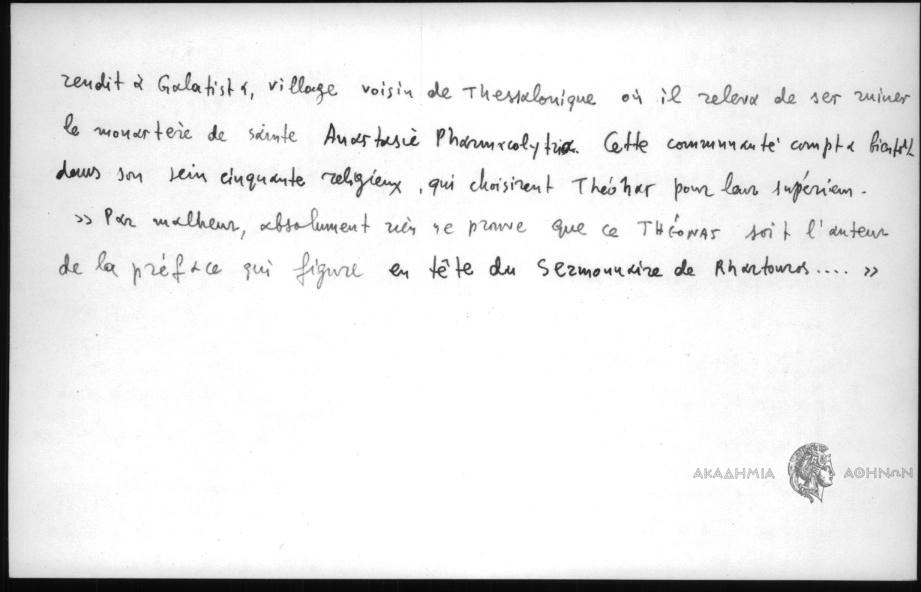 rendit à Galatista, village voisin de Thessalonique où il releva de ses ruines
le monastère de sainte Anastasie Pharmacolytria. Cette communauté compta bientôt
dans son sein cinquante religieux, qui choisirent Théonas pour leur supérieur.
» Par malheur, absolument rien ne prouve que ce THÉONAS soit l'auteur
de la préface qui figure en tête du Sermonnaire de Rhartouros.... »
ΑΚΑΔΗΜΙΑ ΑΘΗΝΩΝ